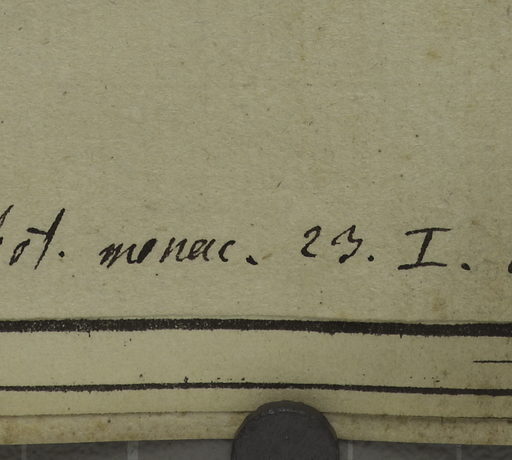 bot. monac. 23. I.